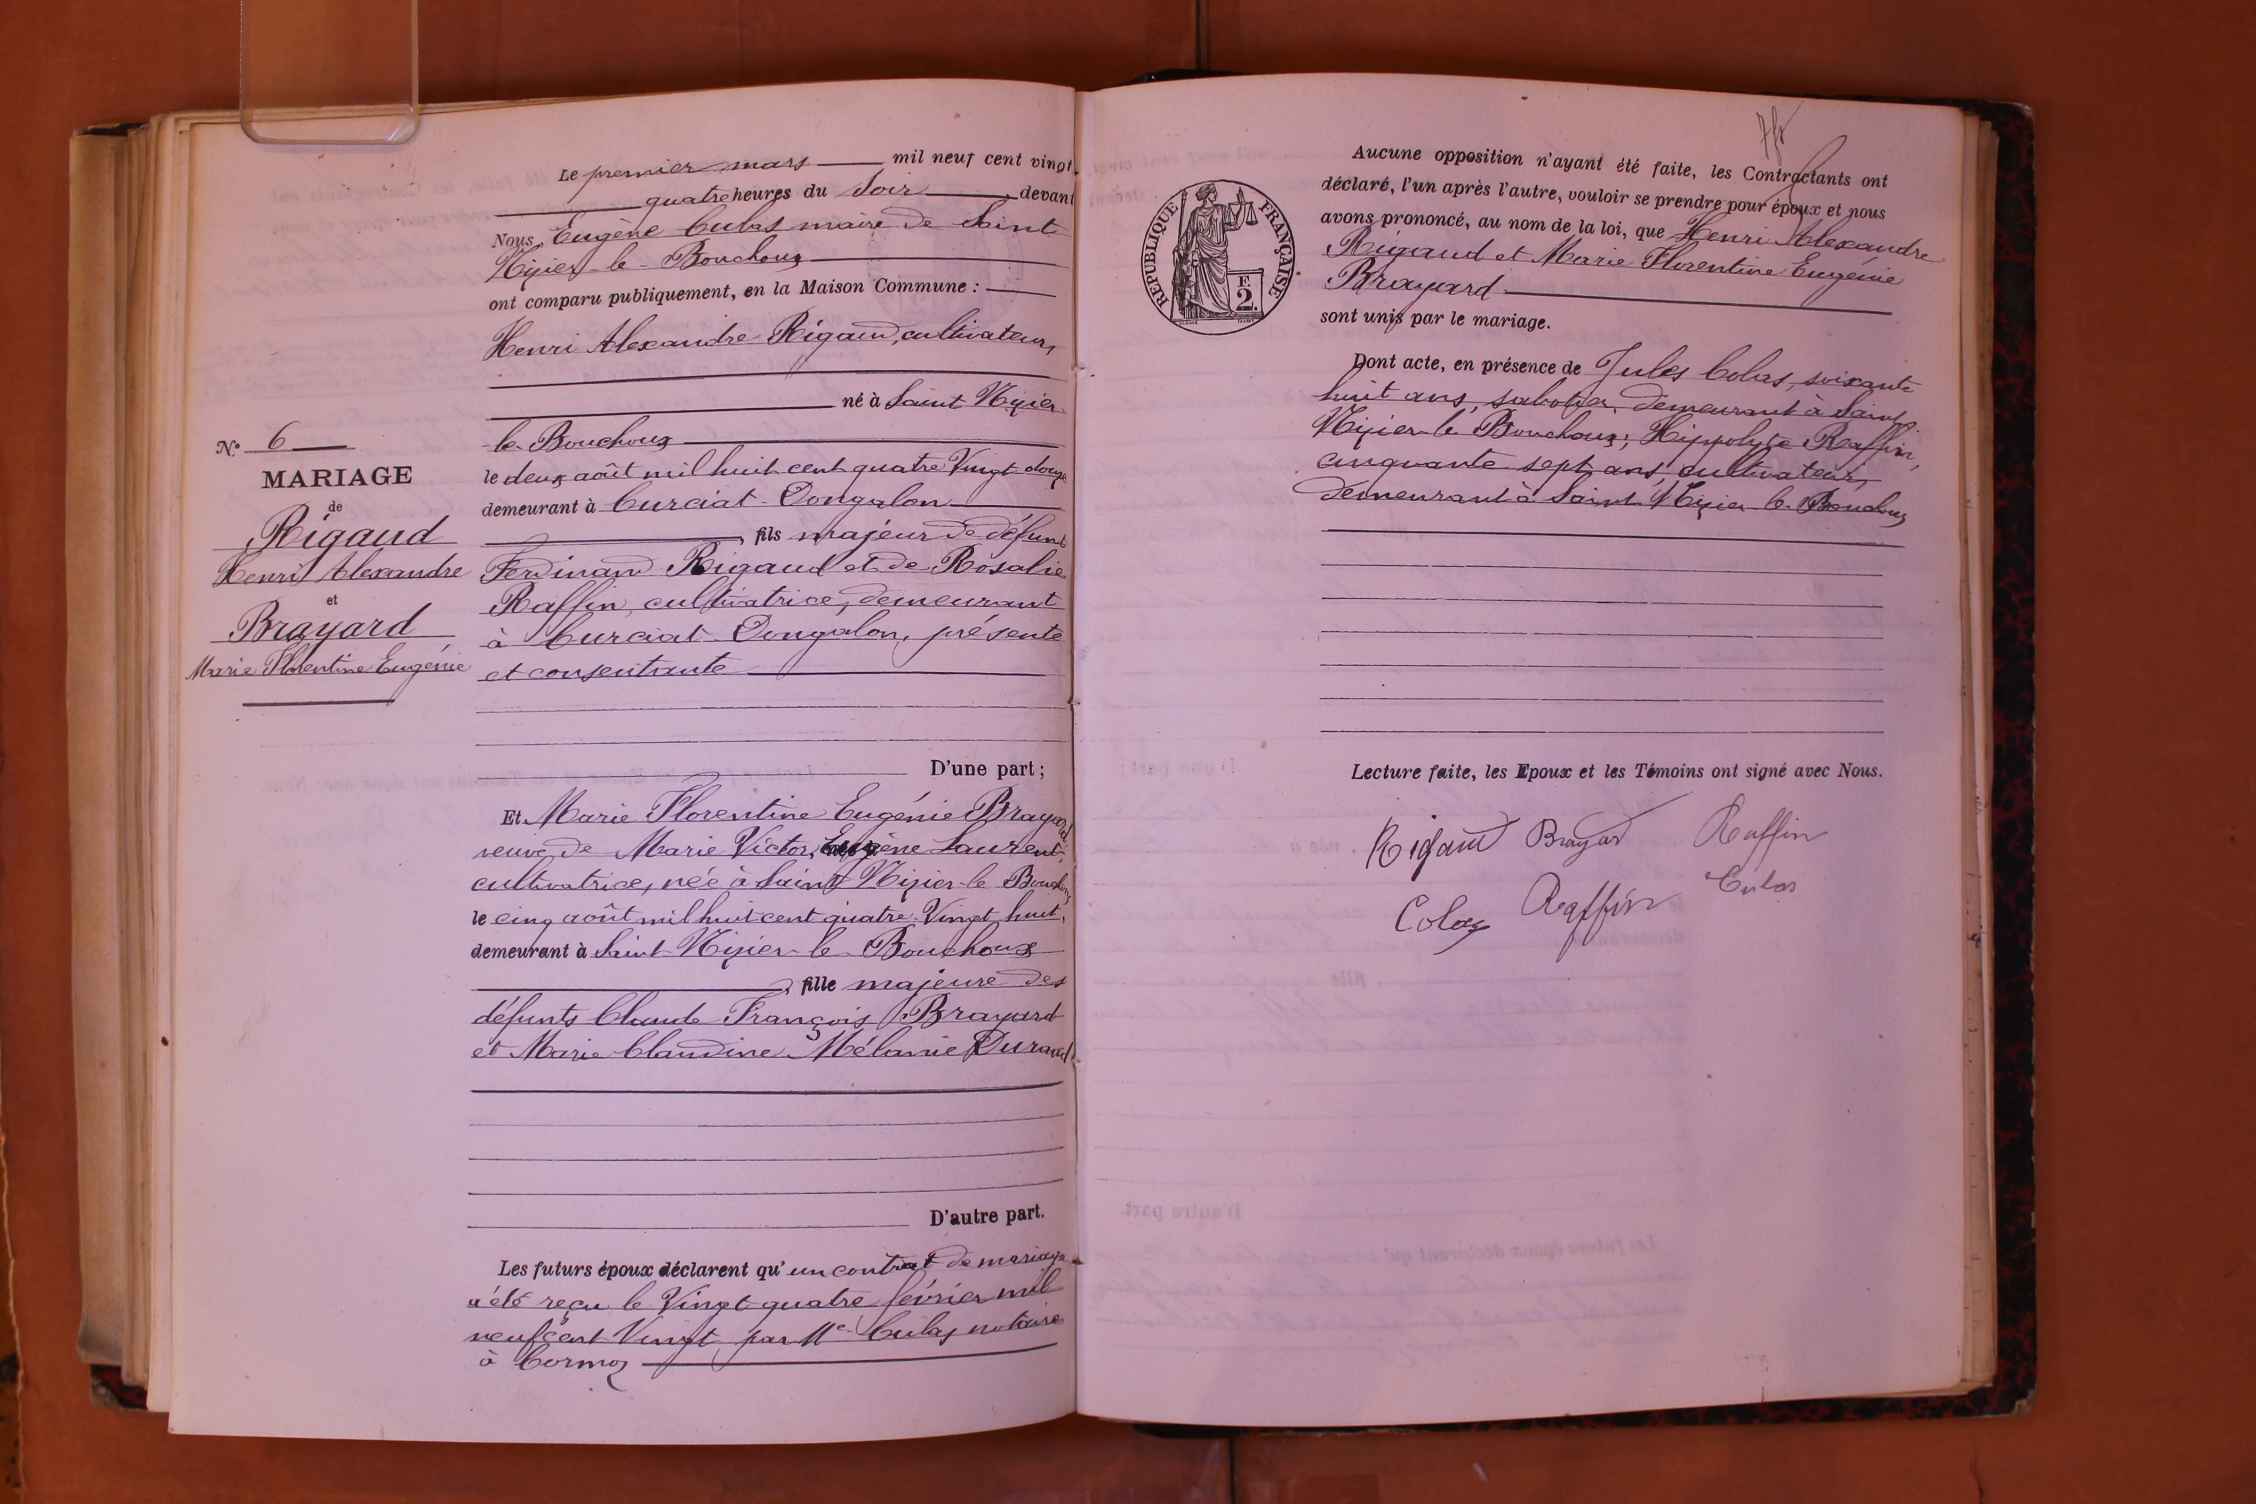 N.º 6
MARIAGE
de
Rigaud
Henri Alexandre
et
Brayard
Marie Florentine Eugénie
Le premier mars mil neuf cent vingt
quatre heures du soir devant
Nous, Eugène Culas maire de Saint
Nizier-le-Bouchoux
ont comparu publiquement, en la Maison Commune :
Henri Alexandre Rigaud, cultivateur,
né à Saint Nizier
le Bouchoux
le deux août mil huit cent quatre Vingt douze
demeurant à Curciat-Dongalon
, fils majeur de défunt
Ferdinand Rigaud et de Rosalie
Raffin, cultivatrice, demeurant
à Curciat-Dongalon, présente
et consentante
D'une part ;
Et Marie Florentine Eugénie Brayard
veuve de Marie Victor, Eugène Laurent,
cultivatrice, née à Saint Nizier-le Bouchoux
le cinq août mil huit cent quatre-Vingt huit,
demeurant à Saint-Nizier-le-Bouchoux
, fille majeure des
défunts Claude François Brayard
et Marie Claudine Mélanie Durand
D'autre part.
Les futurs époux déclarent qu'un contrat de mariage
a été reçu le Vingt quatre février mil
neuf cent Vingt par Me Culas notaire
à Cormoz
RÉPUBLIQUE FRANÇAISE
2 F.
Aucune opposition n'ayant été faite, les Contractants ont
déclaré, l'un après l'autre, vouloir se prendre pour époux et nous
avons prononcé, au nom de la loi, que Henri Alexandre
Rigaud et Marie Florentine Eugénie
Brayard
sont unis par le mariage.
Dont acte, en présence de Jules Colas, soixante
huit ans, sabotier, demeurant à Saint-
Nizier-le Bouchoux; Hippolyte Raffin,
cinquante sept ans, cultivateur,
demeurant à Saint Nizier-le-Bouchoux
Lecture faite, les Epoux et les Témoins ont signé avec Nous.
Rigaud Brayard Raffin
Colas Raffin Culas